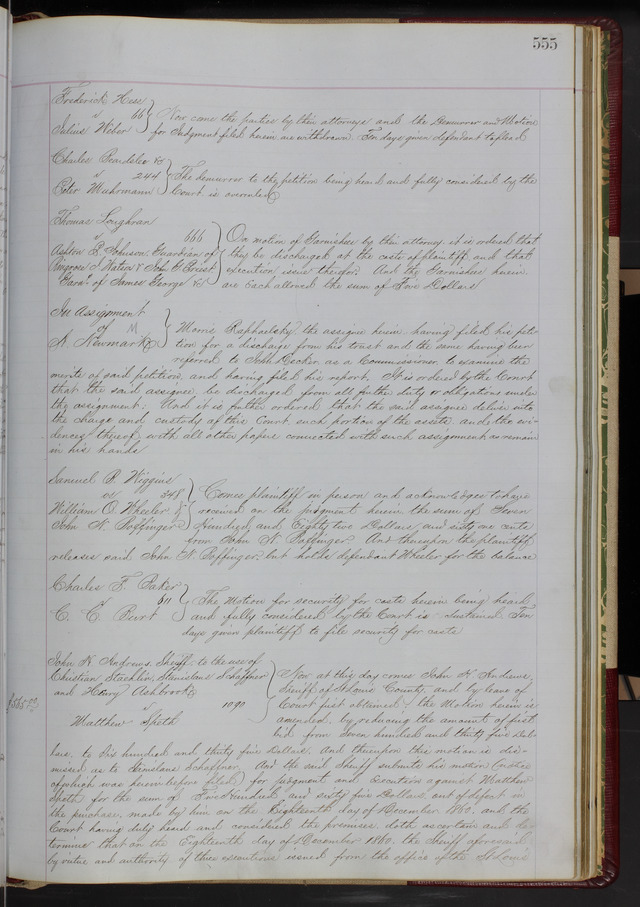 555
Frederick Hess
vs 66
Julius Weber
Now come the parties by their attorneys and the Demurrer and Motion
for Judgment filed herein are withdrawn. Ten days given defendant to plead
Charles Beardslee &c
vs 244
Peter Muhrmann
The demurrer to the petition being heard and fully considered by the
Court is overruled
Thomas Loughran
vs 666
Ashton P. Johnson, Guardian of
J Waters & John G. Priest
Garns. of James George &c
On motion of Garnishee by their attorney it is ordered that
they be discharged at the costs of plaintiff and that
execution issue therefor. And the Garnishees herein
are each allowed the sum of Five Dollars
In Assignment
of M
A Newmark
Morris Raphaelsky the assignee herein having filed his peti-
tion for a discharge from his trust and the same having been
referred to John Decker as a Commissioner to examine the
merits of said petition, and having filed his report. It is ordered by the Court
that the said assignee be discharged from all further duty or obligations under
the assignment. And it is further ordered that the said assignee deliver into
the charge and custody of this Court such portion of the assets and the evi-
dences thereof with all other papers connected with such assignment as remain
in his hands
Samuel B. Wiggins
vs 248
William O. Wheeler &
John N. Poffinger
Comes plaintiff in person and acknowledges to have
received on the judgment herein the sum of Seven
Hundred and Eighty two Dollars and sixty one cents
from John N. Poffinger. And thereupon the plaintiff
releases said John N. Poffinger but holds defendant Wheeler for the balance
Charles F. Baker
vs 611
C. C. Burt
The Motion for security for costs herein being heard
and fully considered by the Court is sustained. Ten
days given plaintiff to file security for costs
John H. Andrews, Sheriff to the use of
Christian Staehlin, Stanislaus Schaffner
and Henry Ashbrook
vs 1090
Matthew Speth
Now at this day comes John H. Andrews
Sheriff of St. Louis County, and by leave of
Court first obtained, the Motion herein is
amended by reducing the amount of first
bid from seven hundred and thirty five Dol-
$565.00
lars, to Six hundred and thirty five Dollars. And thereupon this motion is dis-
missed as to Stanislaus Schaffner. And the said Sheriff submits his motion (notice
of which was herein before filed) for judgment and execution against Matthew
Speth for the sum of Five Hundred and sixty five Dollars out of deficit in
the purchase made by him on the Eighteenth day of December 1860, and the
Court having duly heard and considered the premises doth ascertain and de-
termine that on the Eighteenth day of December 1860, the Sheriff aforesaid
by virtue and authority of three executions issued from the office of the St Louis